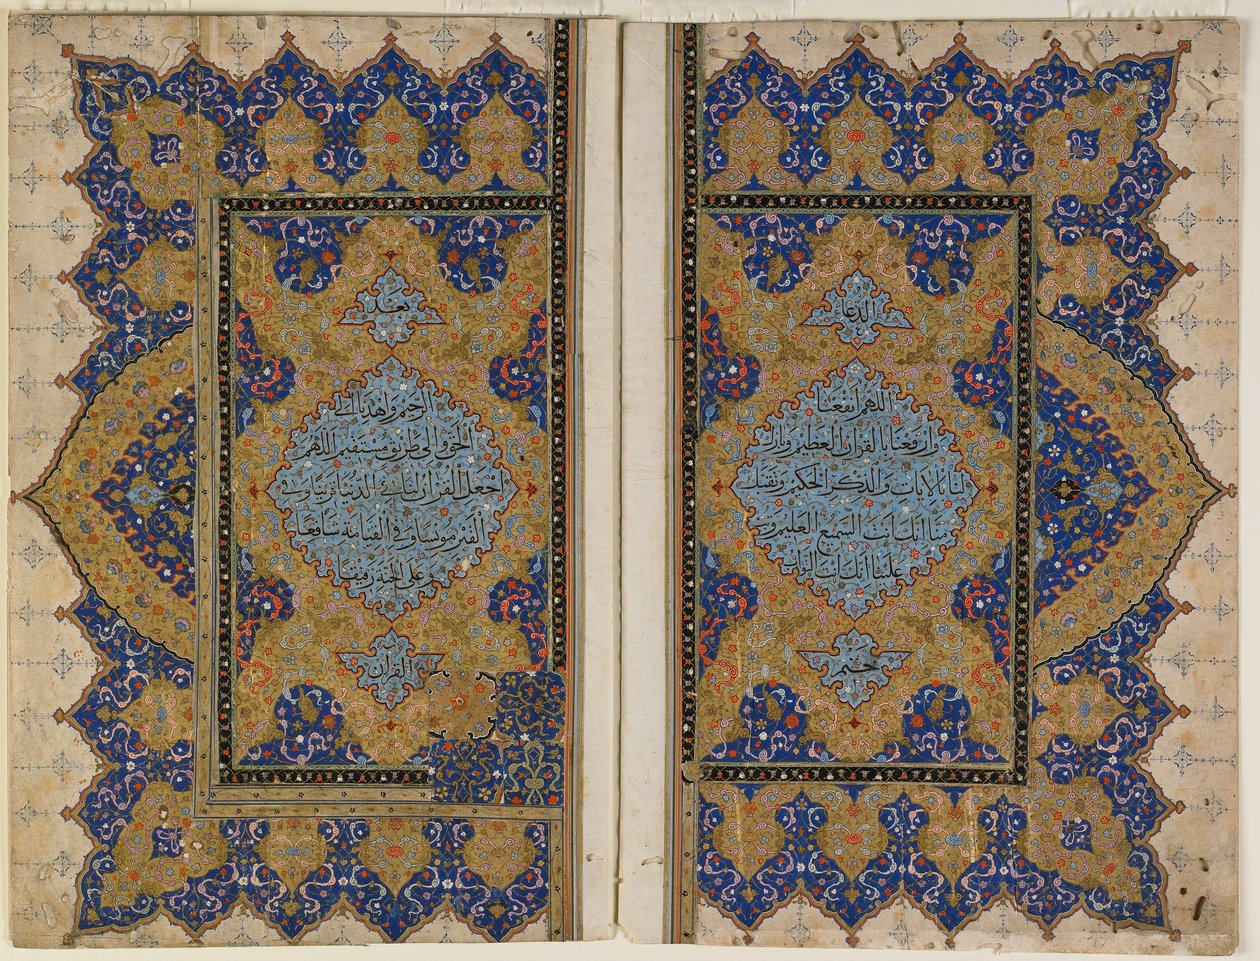 الدعاء
اللهم انفعنا
وارفعنا بالقران العظيم وبارك
لنا بالايات والذكر الحكيم وتقبل
منا انك انت السميع العليم وتب
علينا انك انت التواب
ختم
بعد
الرحيم واهدنا الى
الحق والى طريق مستقيم اللهم
اجعل القران لنا في الدنيا قرينا وفي
القبر مونسا وفي القيامة شافعا
الجنة رفيقا
القرآن